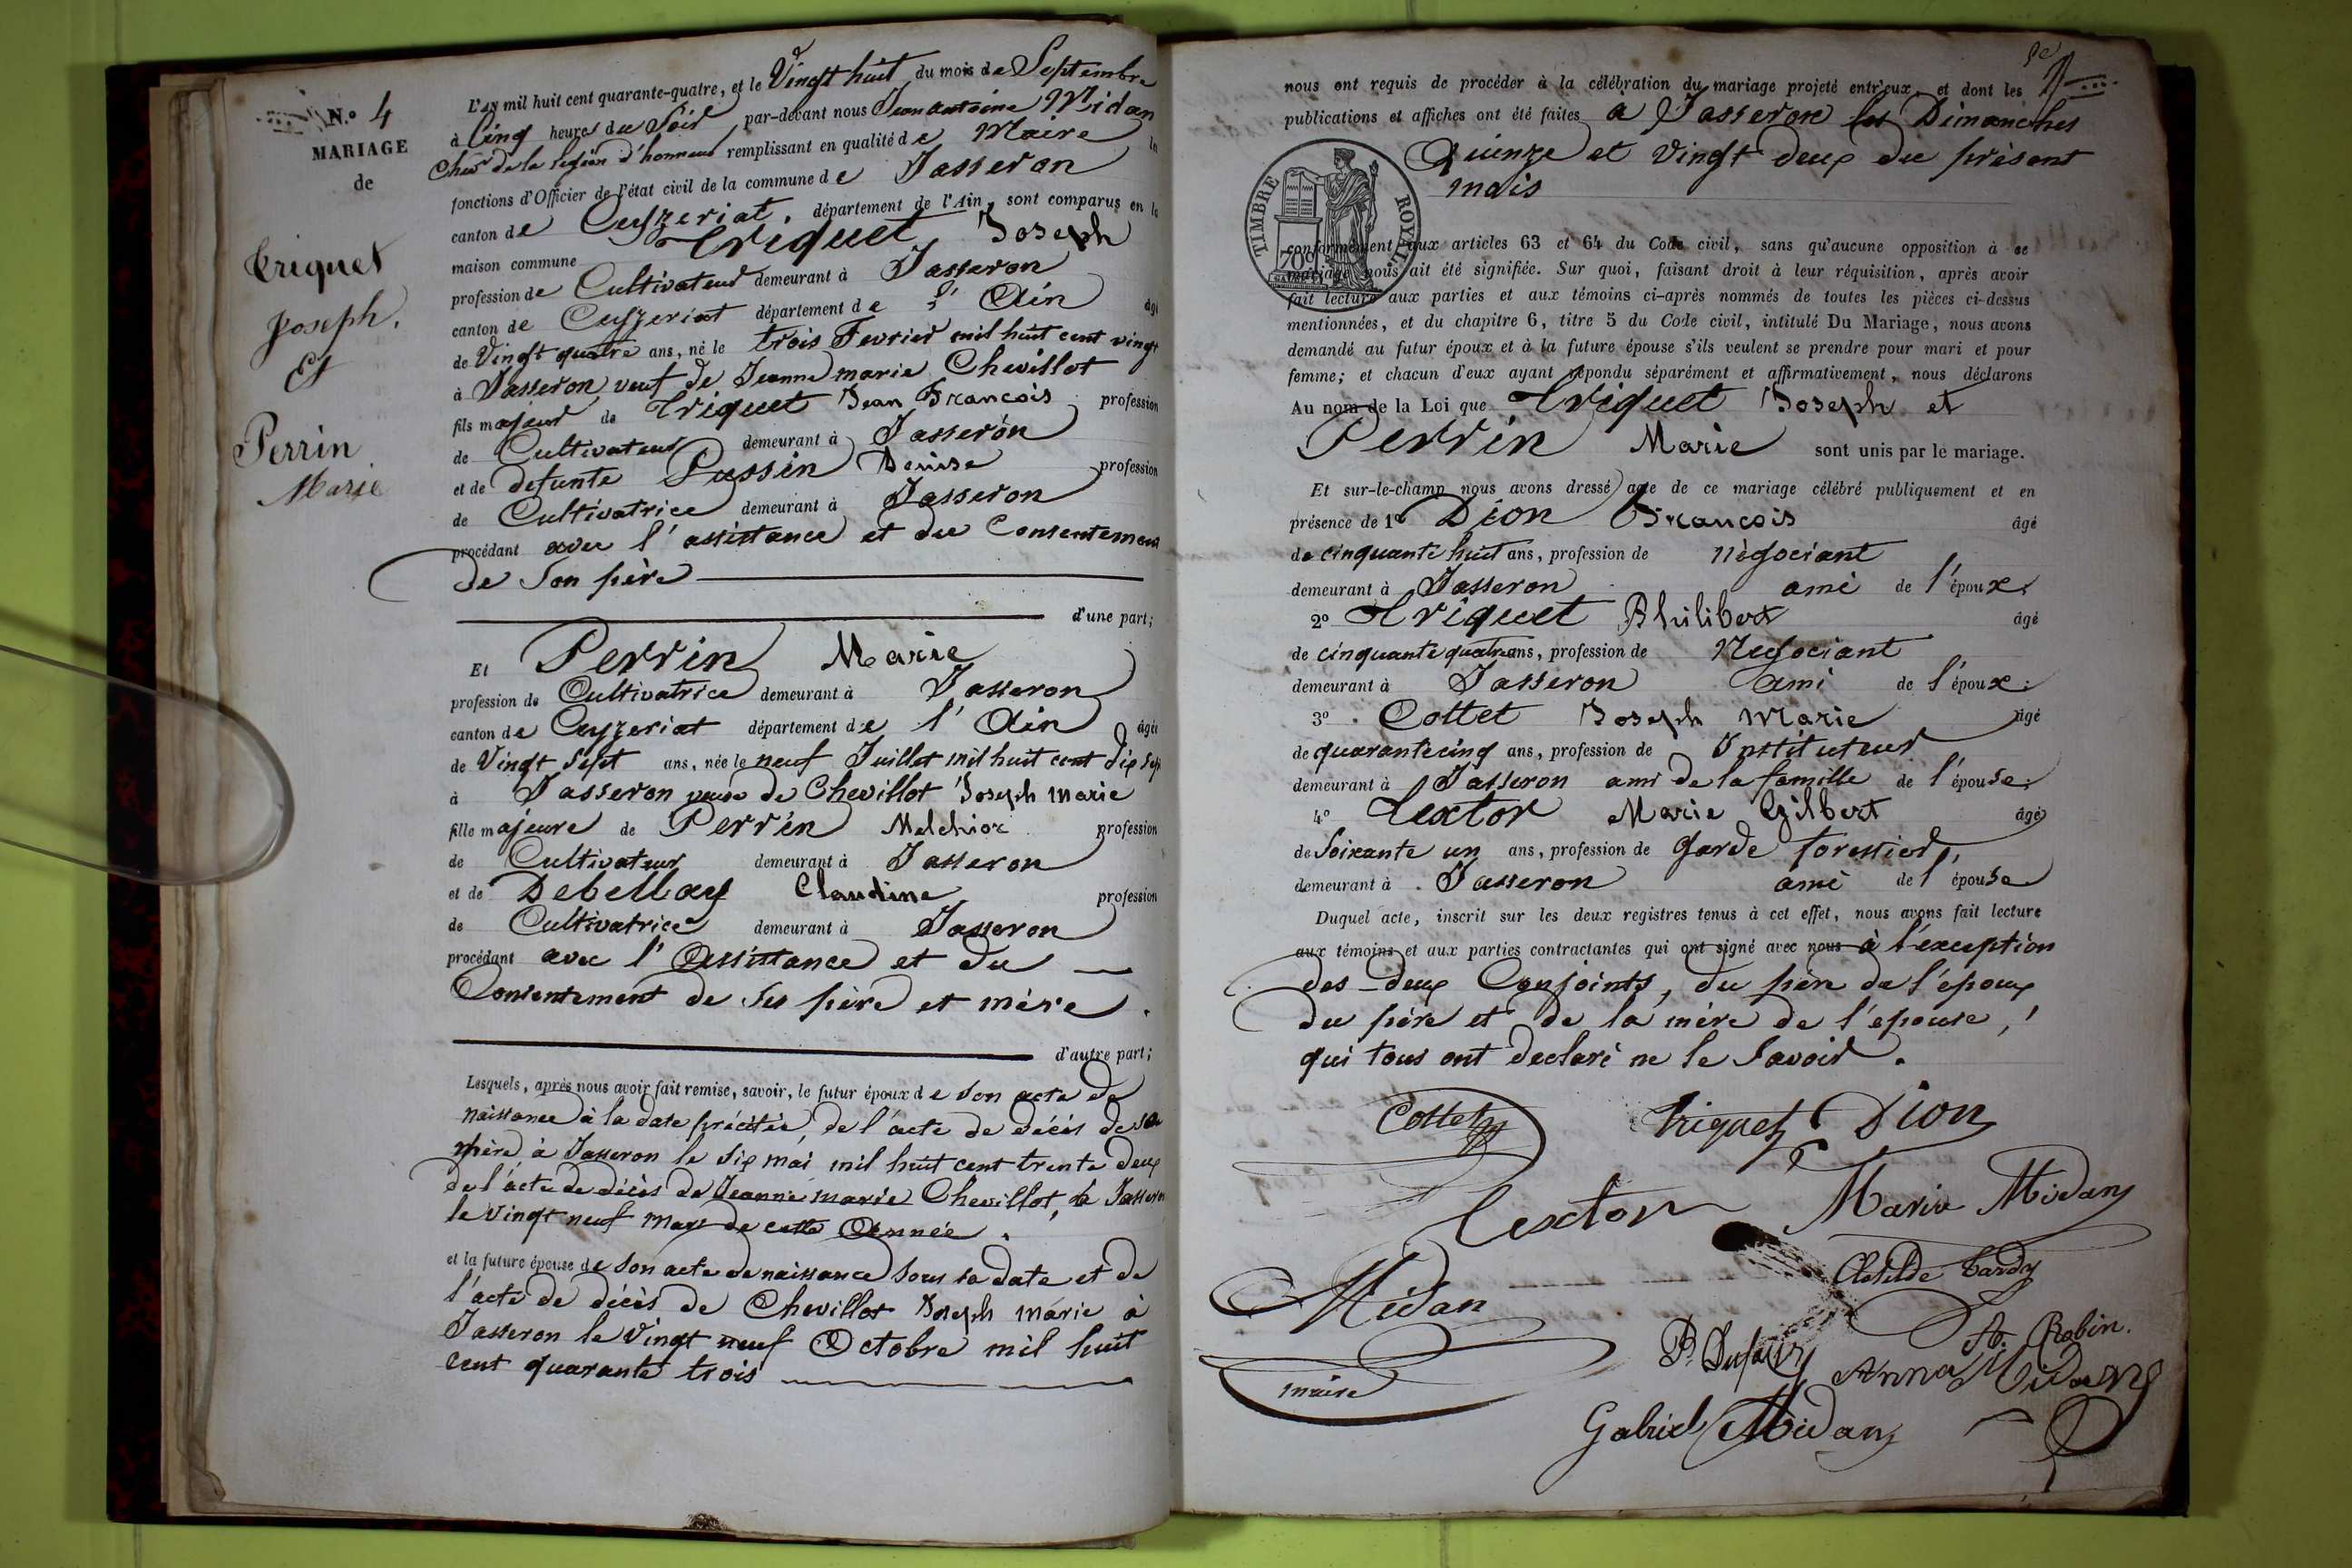 N.º 4
MARIAGE
de
Triquet
Joseph.
Et
Perrin
Marie
L'an mil huit cent quarante-quatre, et le Vingt huit du mois de Septembre
à Cinq heures du Soir par-devant nous Jean antoine Midan
Cher de la legion d'honneur remplissant en qualité de Maire
fonctions d'Officier de l'état civil de la commune de Jasseron
canton de Ceyzeriat, département de l'Ain, sont comparus en la
maison commune Triquet Joseph
profession de Cultivateur demeurant à Jasseron
canton de Ceyzeriat département de l' Ain âgé
de Vingt quatre ans, né le trois Fevrier mil huit cent vingt
à Jasseron veuf de Jeanne marie Chevillot
fils majeur de Triquet Jean Francois profession
de Cultivateur demeurant à Jasseron
et de defunte Pussin Denise profession
de Cultivatrice demeurant à Jasseron
procédant avec l'assistance et du Consentement
de Son père
d'une part;
Et Perrin Marie
profession de Cultivatrice demeurant à Jasseron
canton de Ceyzeriat département de l' Ain âgée
de Vingt Sept ans, née le neuf Juillet mil huit cent dix sept
à Jasseron veuve de Chevillot Joseph marie
fille majeure de Perrin Melchior profession
de Cultivateur demeurant à Jasseron
et de Debellay Claudine profession
de Cultivatrice demeurant à Jasseron
procédant avec l'Assistance et du
Consentement de Ses père et mère.
d'autre part;
Lesquels, après nous avoir fait remise, savoir, le futur époux de son acte de
naissance à la date précitée, de l'acte de décès de sa
mère à Jasseron le Six mai mil huit cent trente deux
de l'acte de décès de Jeanne marie Chevillot, à Jasseron
le vingt neuf mars de cette Année.
et la future épouse de Son acte de naissance sous sa date et de
l'acte de décès de Chevillot Joseph marie à
Jasseron le Vingt neuf Octobre mil huit
cent quarante trois
nous ont requis de procéder à la célébration du mariage projeté entr'eux, et dont les
publications et affiches ont été faites à Jasseron les Dimanches
Quinze et Vingt deux du présent
mois
TIMBRE ROYAL
70
conformément aux articles 63 et 64 du Code civil, sans qu'aucune opposition à ce
mariage nous ait été signifiée. Sur quoi, faisant droit à leur réquisition, après avoir
fait lecture aux parties et aux témoins ci-après nommés de toutes les pièces ci-dessus
mentionnées, et du chapitre 6, titre 5 du Code civil, intitulé Du Mariage, nous avons
demandé au futur époux et à la future épouse s'ils veulent se prendre pour mari et pour
femme; et chacun d'eux ayant répondu séparément et affirmativement, nous déclarons
Au nom de la Loi que Triquet Joseph et
Perrin Marie sont unis par le mariage.
Et sur-le-champ nous avons dressé acte de ce mariage célébré publiquement et en
présence de 1º Dion Francois âgé
de cinquante huit ans, profession de négociant
demeurant à Jasseron ami de l'époux.
2º Triquet Philibert âgé
de cinquante quatre ans, profession de Negociant
demeurant à Jasseron ami de l'époux.
3º Cottet Joseph Marie âgé
de quarante cinq ans, profession de Instituteur
demeurant à Jasseron ami de la famille de l'épouse.
4º Textor Marie Gilbert âgé
de Soixante un ans, profession de garde forestier,
demeurant à Jasseron ami de l'épouse
Duquel acte, inscrit sur les deux registres tenus à cet effet, nous avons fait lecture
aux témoins et aux parties contractantes qui ont signé avec nous à l'exception
des deux Conjoints, du père de l'époux
du père et de la mère de l'epouse,
qui tous ont declaré ne le Savoir.
Cottet Triquet Dion
Textor Marie Midan
Clotilde Tardy
Midan
maire
A. Robin.
P. Dufour Anna Midan
Gabriel Midan